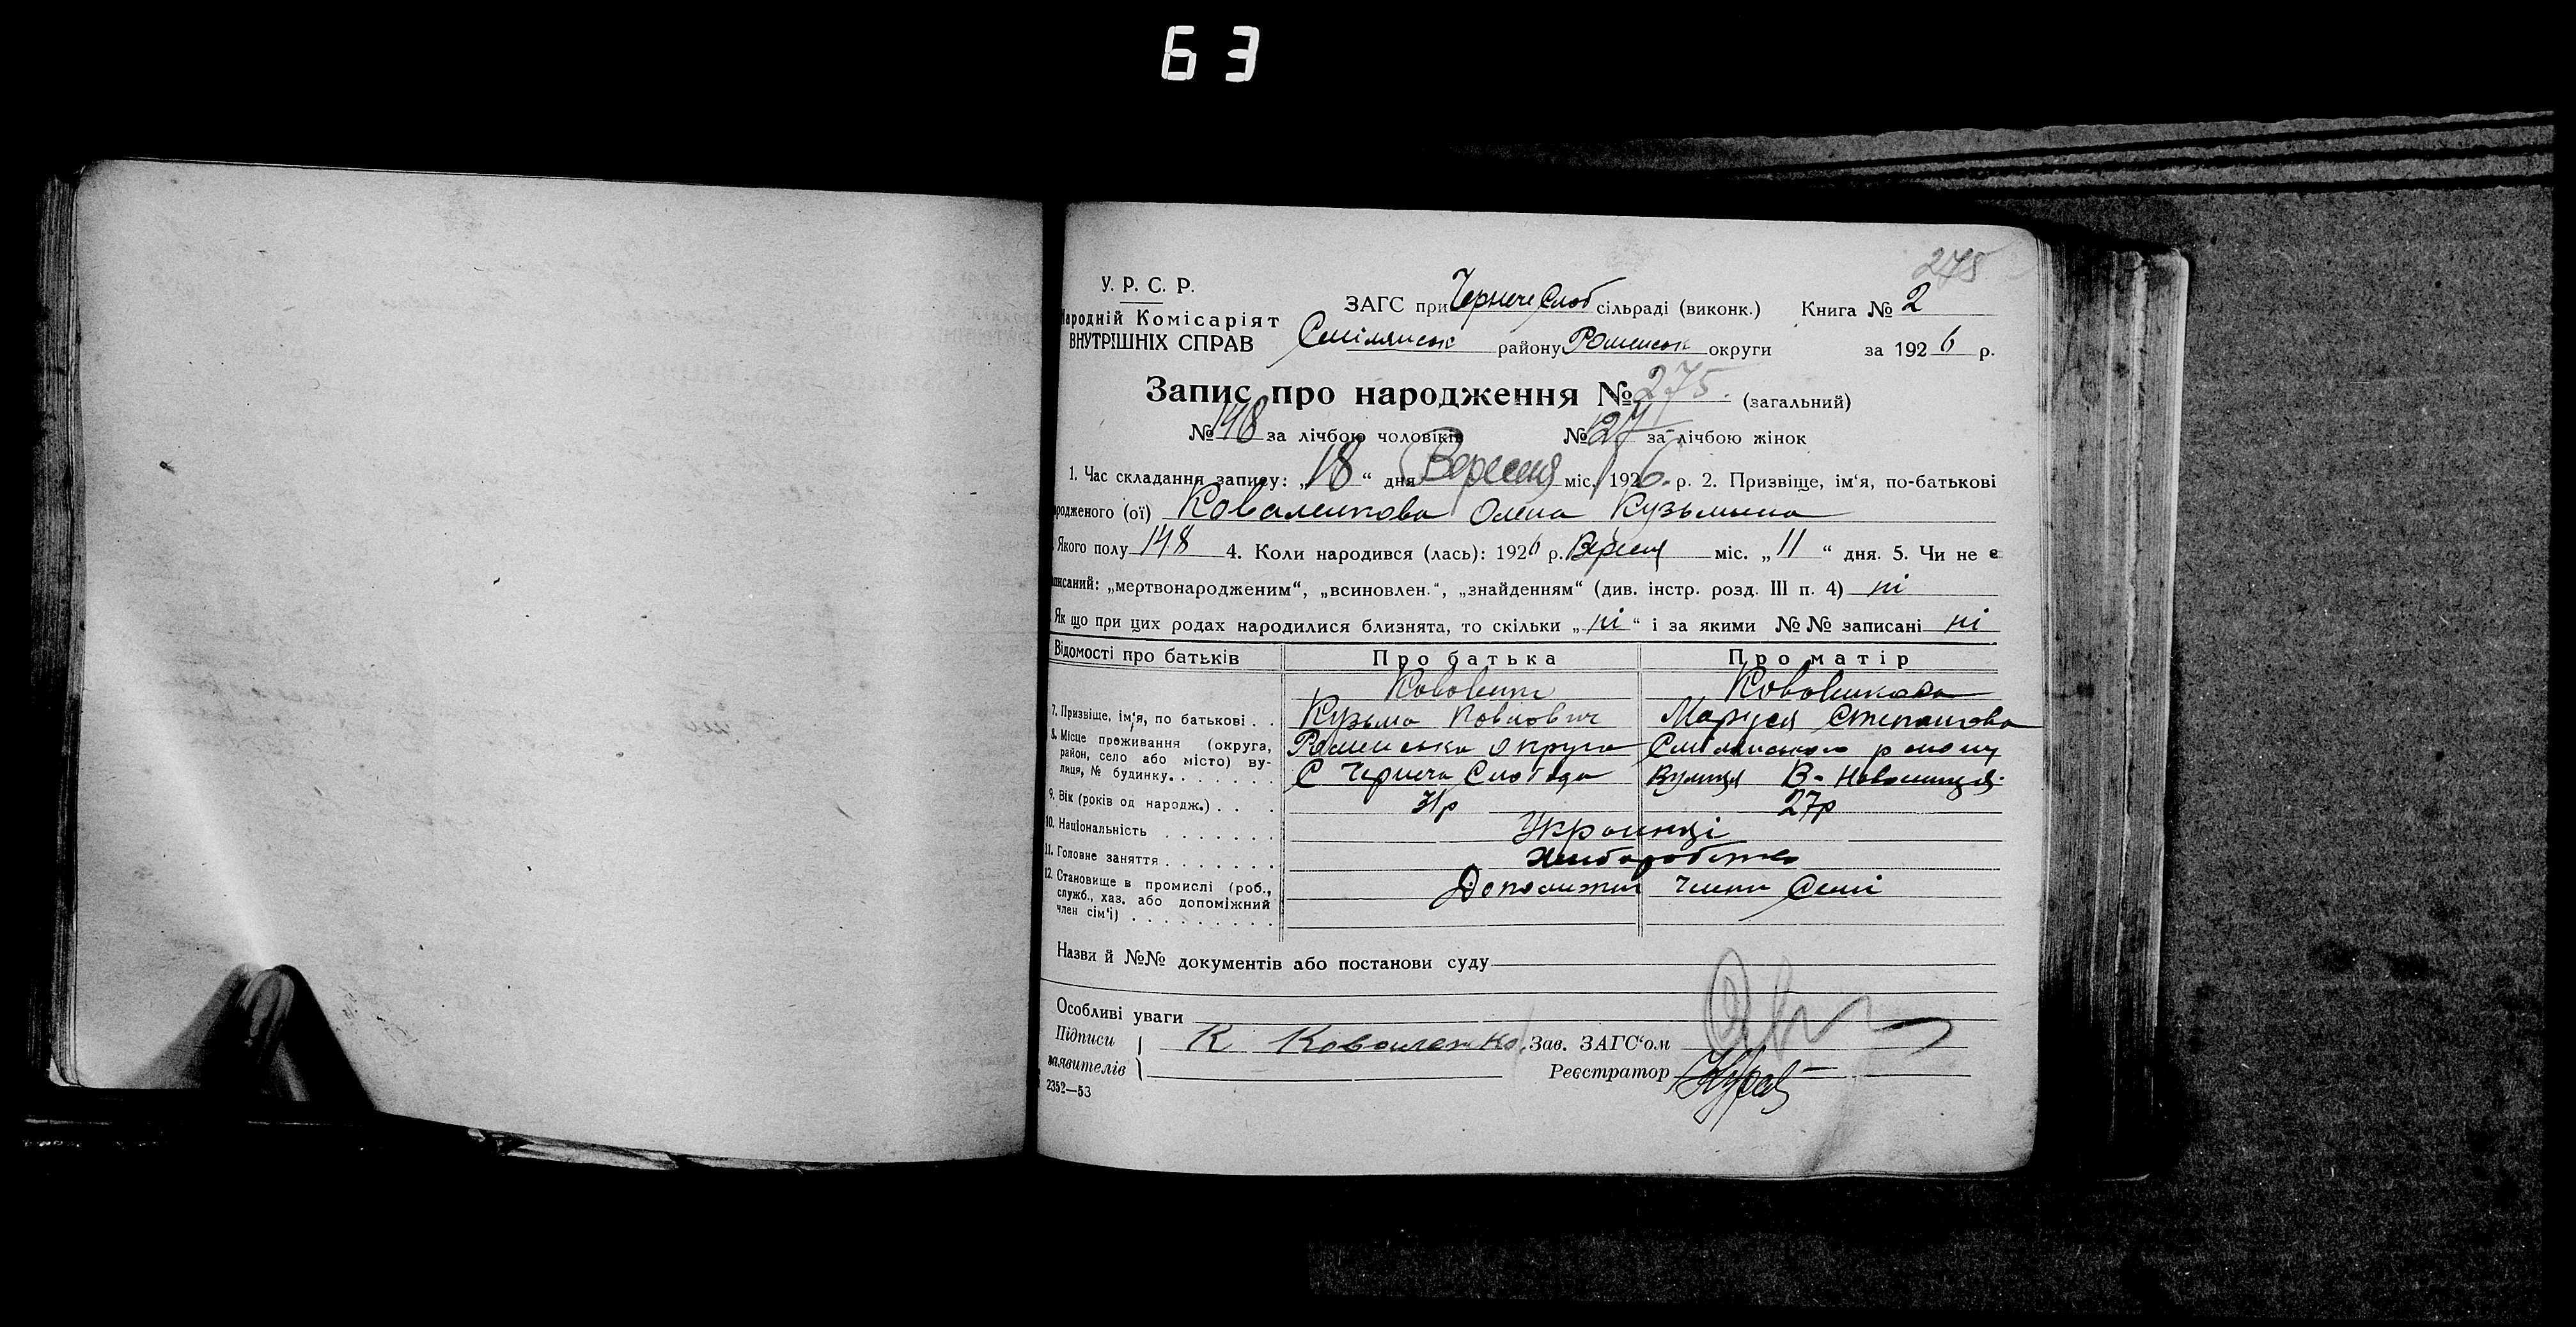 63
275
У. Р. С. Р.
Народній Комісаріят
ВНУТРІШНІХ СПРАВ
ЗАГС при Чернече Слоб сільраді (виконк.) Книга № 2
Смілянськ району Роменськ округи за 1926 р.
Запис про народження № 275. (загальний)
№ 148 за лічбою чоловіків № 127 за лічбою жінок
1. Час складання запису: „18“ дня Вересня міс. 1926. р. 2. Призвіще, ім‘я, по-батькові
родженого (ої) Коваленкова Олена Кузьмина
Якого полу 148 4. Коли народився (лась): 1926 р. Вересня міс. „11“ дня. 5. Чи не є
аписаний: „мертвонародженим“, „всиновлен.“, „знайденням“ (див. інстр. розд. III п. 4) ні
Як що при цих родах народилися близнята, то скільки „ні“ і за якими №№ записані ні
Відомості про батьків Про батька Про матір
7. Призвіще, ім‘я, по батькові . . Кузьма Павлович Маруся Степанова
8. Місце проживання (округа, Роменська округа Смілянського району
район, село або місто) ву-
лиця, № будинку. . . . . . . С Чернеча Слобода Вулиця В-
9. Вік (років од народж.) . . . 31р 27р
10. Національність . . . . . . . Украінці
11. Головне заняття . . . . . . . Хлиборобство
12. Становище в промислі (роб.,
служб., хаз. або допоміжний
член сім‘ї) . . . . . . . . . Допомижни члени Семі
Назви й №№ документів або постанови суду
Особливі уваги
Підписи
заявителів
К Коваленко. Зав. ЗАГС‘ом
Реєстратор
2352—53